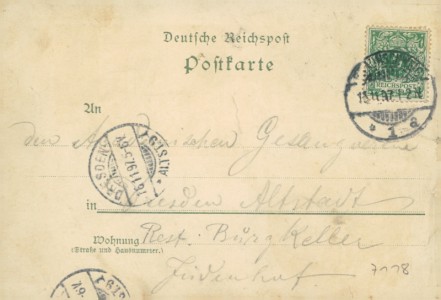 Deutsche Reichspost
Postkarte
REICHSPOST
15.11.97. 1-2 N
b 1 a
An
den Akademischen Gesangverein
DRESDEN
15.11.97. 5-6 N
in Dresden Altstadt
Wohnung Rest. Burg Keller
(Straße und Hausnummer.)
Jüdenhof
7118